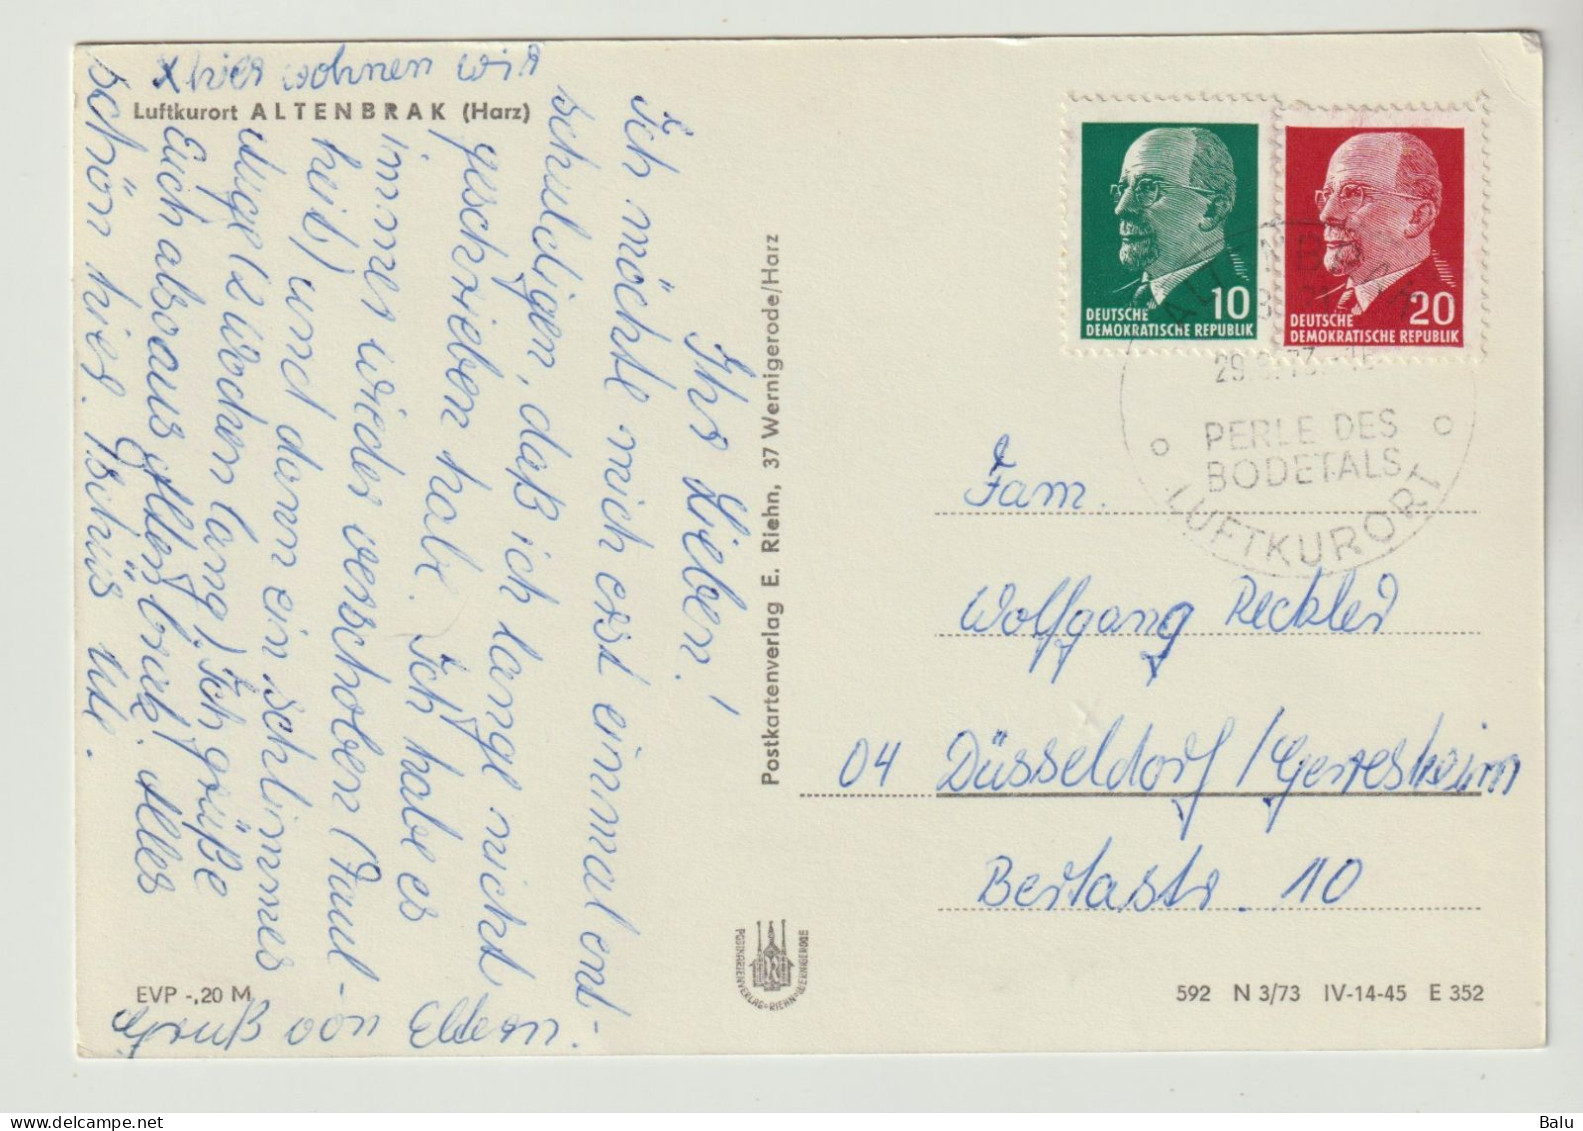 x hier wohnen wir
Luftkurort ALTENBRAK (Harz)
Ihr Lieben!
Ich möchte mich erst einmal ent-
schuldigen, daß ich lange nicht
geschrieben habe. Ich habe es
immer wieder verschoben (Faul-
heit) und dann ein schlimmes
Auge (2 Wochen lang). Ich grüße
Euch also aus Altenbrak. Alles
schön hier. Tschüs Ute.
Gruß von Eltern.
EVP -,20 M
Postkartenverlag E. Riehn, 37 Wernigerode/Harz
POSTKARTENVERLAG RIEHN WERNIGERODE
10
DEUTSCHE
DEMOKRATISCHE REPUBLIK
20
DEUTSCHE
DEMOKRATISCHE REPUBLIK
PERLE DES
BODETALS
LUFTKURORT
Fam.
Wolfgang Reckler
04 Düsseldorf/Gerresheim
Bertastr. 10
592 N 3/73 IV-14-45 E 352
Balu